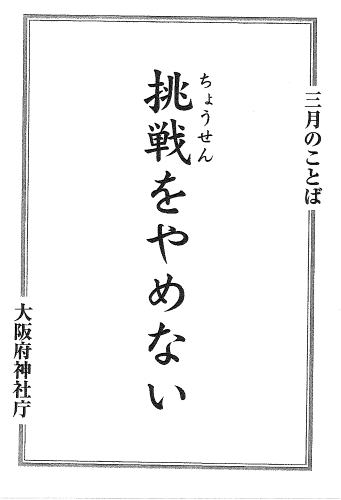 三月のことば
ちょうせん
挑戦をやめない
大阪府神社庁